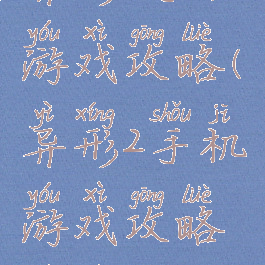 yóu xì gōng lüè
游戏攻略(
yì xíng shǒu jī
异形2手机
yóu xì gōng lüè
游戏攻略